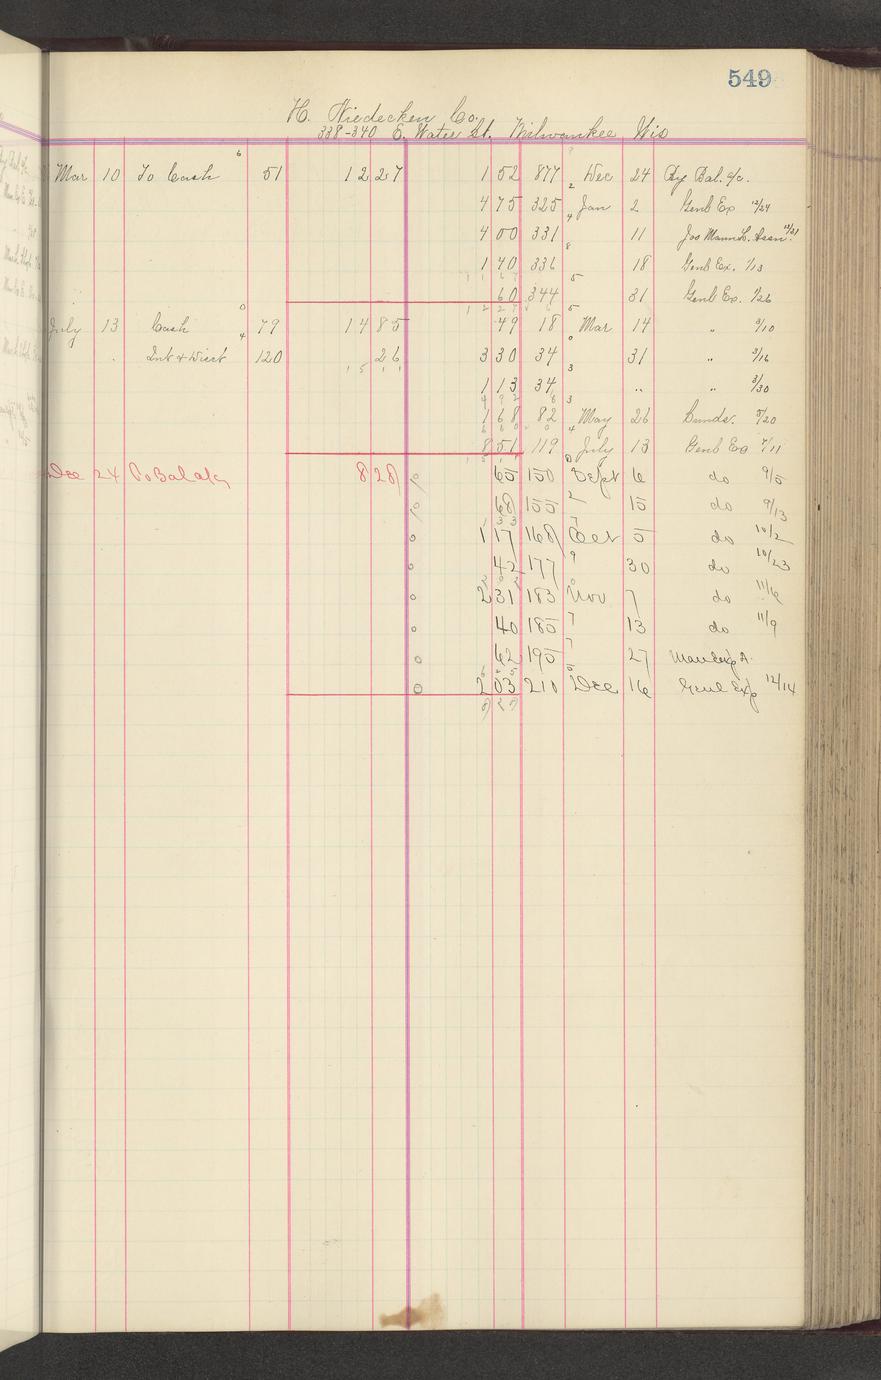 549
H. Niedecken Co.
338-340 E. Water St. Milwaukee Wis
Mar 10 To Cash 6 51 12 27 1 52 877 Dec 24 By Bal. a/c.
4 75 325 2 Jan 2 Genl Ex 12/24
4 00 331 4 11 Jos Mann L. Assn. 12/31
1 40 336 8 18 Genl Ex. 1/13
60 344 5 31 Genl Ex. 1/26
July 13 Cash 0 79 14 85 49 18 5 Mar 14 " 3/10
Int & Disct 4 120 26 3 30 34 0 31 " 3/16
15 11 1 13 34 3 " " 3/30
1 68 82 3 May 26 Sunds. 5/20
8 51 119 4 July 13 Genl Ex 7/11
Dec 24 To Bal a/c 8 28 65 150 0 Sept 6 do 9/5
68 155 2 15 do 9/13
1 17 168 7 Oct 5 do 10/2
42 177 9 30 do 10/23
2 31 183 0 Nov 7 do 11/6
40 185 7 13 do 11/9
62 195 7 27
2 03 210 5 Dec 16 Genl Exp 12/14
8 28